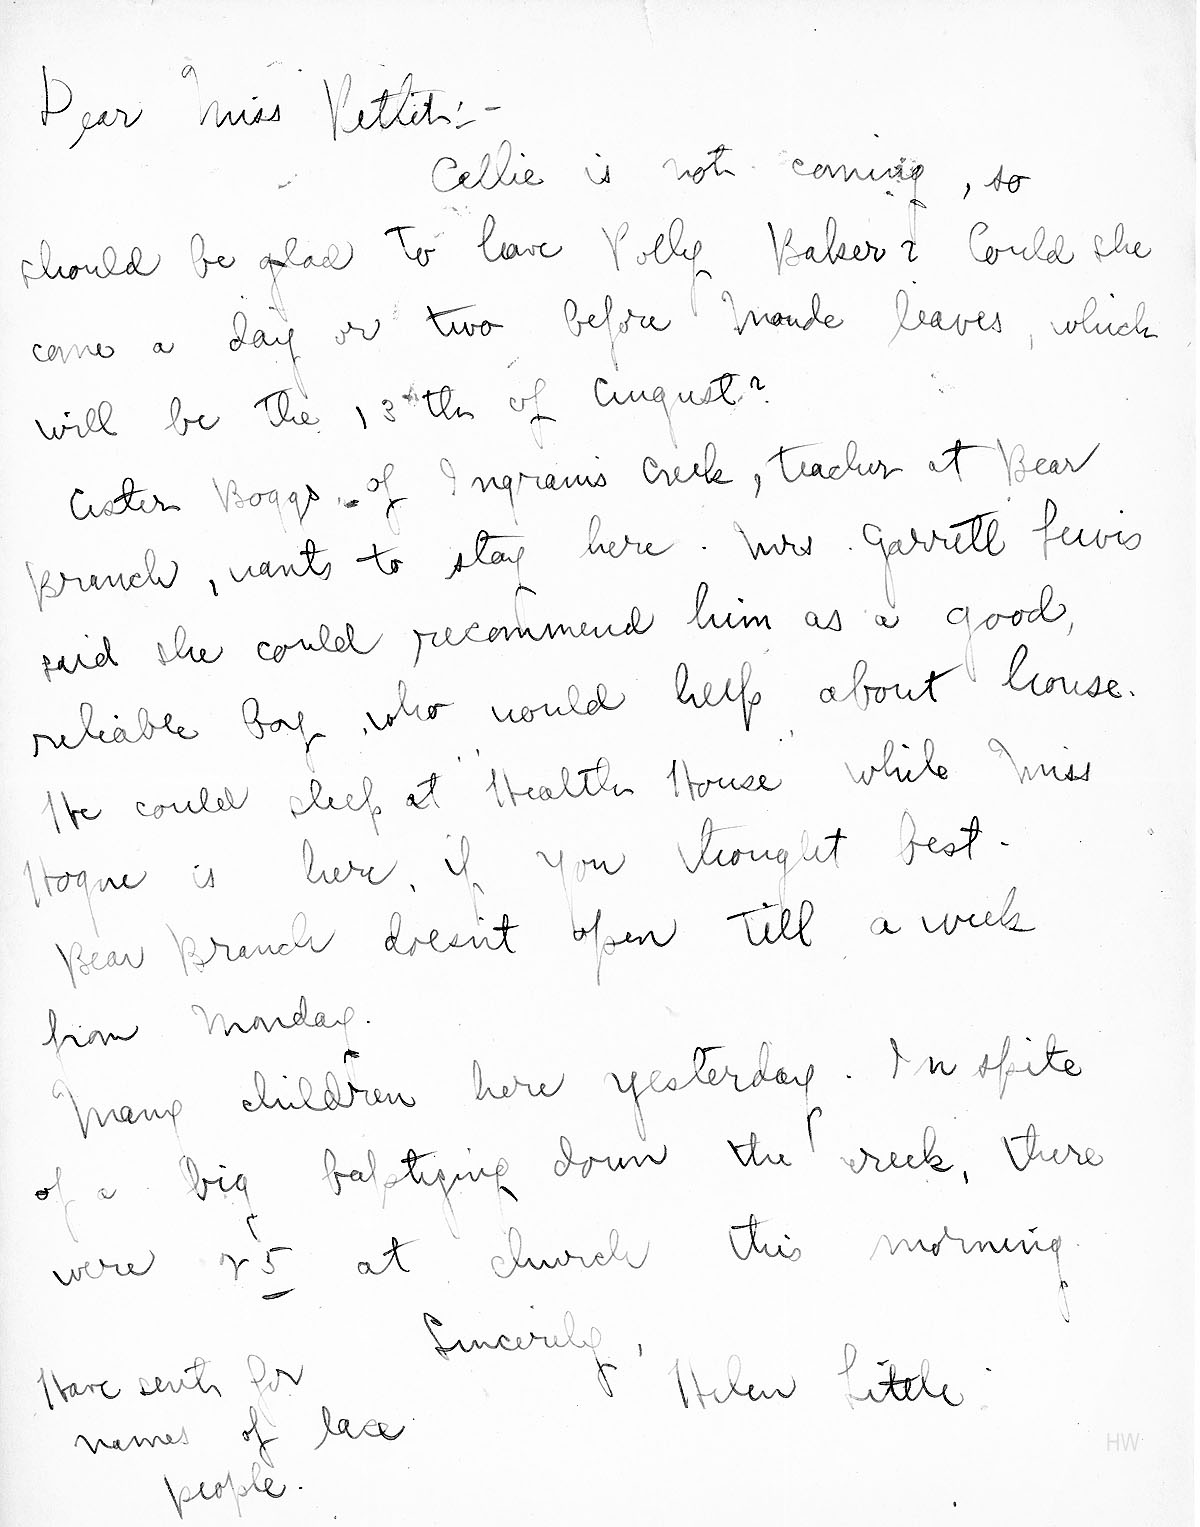 Dear Miss Pettit:-
Callie is not coming, so
should be glad to have Polly Baker? Could she
come a day or two before Maude leaves, which
will be the 13th of August?
Boggs - of Ingrams Creek, teacher at Bear
Branch, wants to stay here. Mrs. Garrett Lewis
said she could recommend him as a good,
reliable boy, who would help about house.
He could sleep at "Health House" while Miss
Hogue is here, if you thought best.
Bear Branch doesn't open till a week
from Monday.
Many children here yesterday. In spite
of a big baptizing down the creek, there
were 25 at church this morning.
Sincerely,
Helen Little.
Have sent for
names of lace
people.
HW